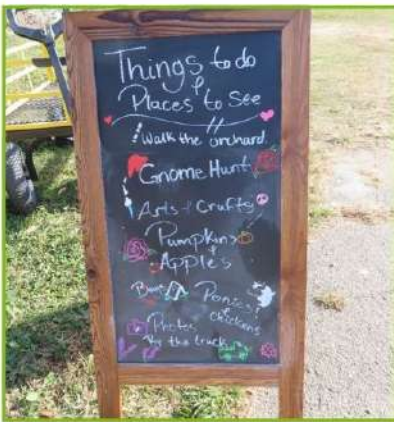 Things to do
&
Places to See
Walk the orchard
Gnome Hunt
Arts & Crafts
Pumpkins
&
Apples
Ponies!
& Chickens
Photos
By the truck